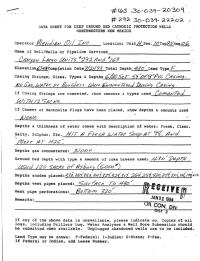 #63 30-039-20309
#293 30-039-22202
DATA SHEET FOR DEEP GROUND BED CATHODIC PROTECTION WELLS
NORTHWESTERN NEW MEXICO
Operator Meridian Oil Inc. Location: Unit Sec. Twp Rng
Name of Well/Wells or Pipeline Serviced
Canyon Largo Units #293 And #63
Elevation Completion Date Total Depth 420 Land Type F
Casing Strings, Sizes, Types & Depths
No Gas, Water, or Boulders Were Encountered During Casing.
If Casing Strings are cemented, show amounts & types used Cemented
With 12 Sacks.
If Cement or Bentonite Plugs have been placed, show depths & amounts used
None
Depths & thickness of water zones with description of water: Fresh, Clear,
Salty, Sulphur, Etc. Hit A Fresh Water Seep At 95, And
More At 125.
Depths gas encountered: None
Ground bed depth with type & amount of coke breeze used: 420 Depth
Used 120 Sacks of Asbury (6000#)
Depths anodes placed:
Depths vent pipes placed: Surface To 420.
Vent pipe perforations: Bottom 320.
Remarks:
RECEIVED
OIL CON. DIV
If any of the above data is unavailable, please indicate so. Copies of all
logs, including Drillers Log, Water Analyses & Well Bore Schematics should
be submitted when available. Unplugged abandoned wells are to be included.
Land Type may be shown: F-Federal; I-Indian; S-State; P-Fee.
If Federal or Indian, add Lease Number.